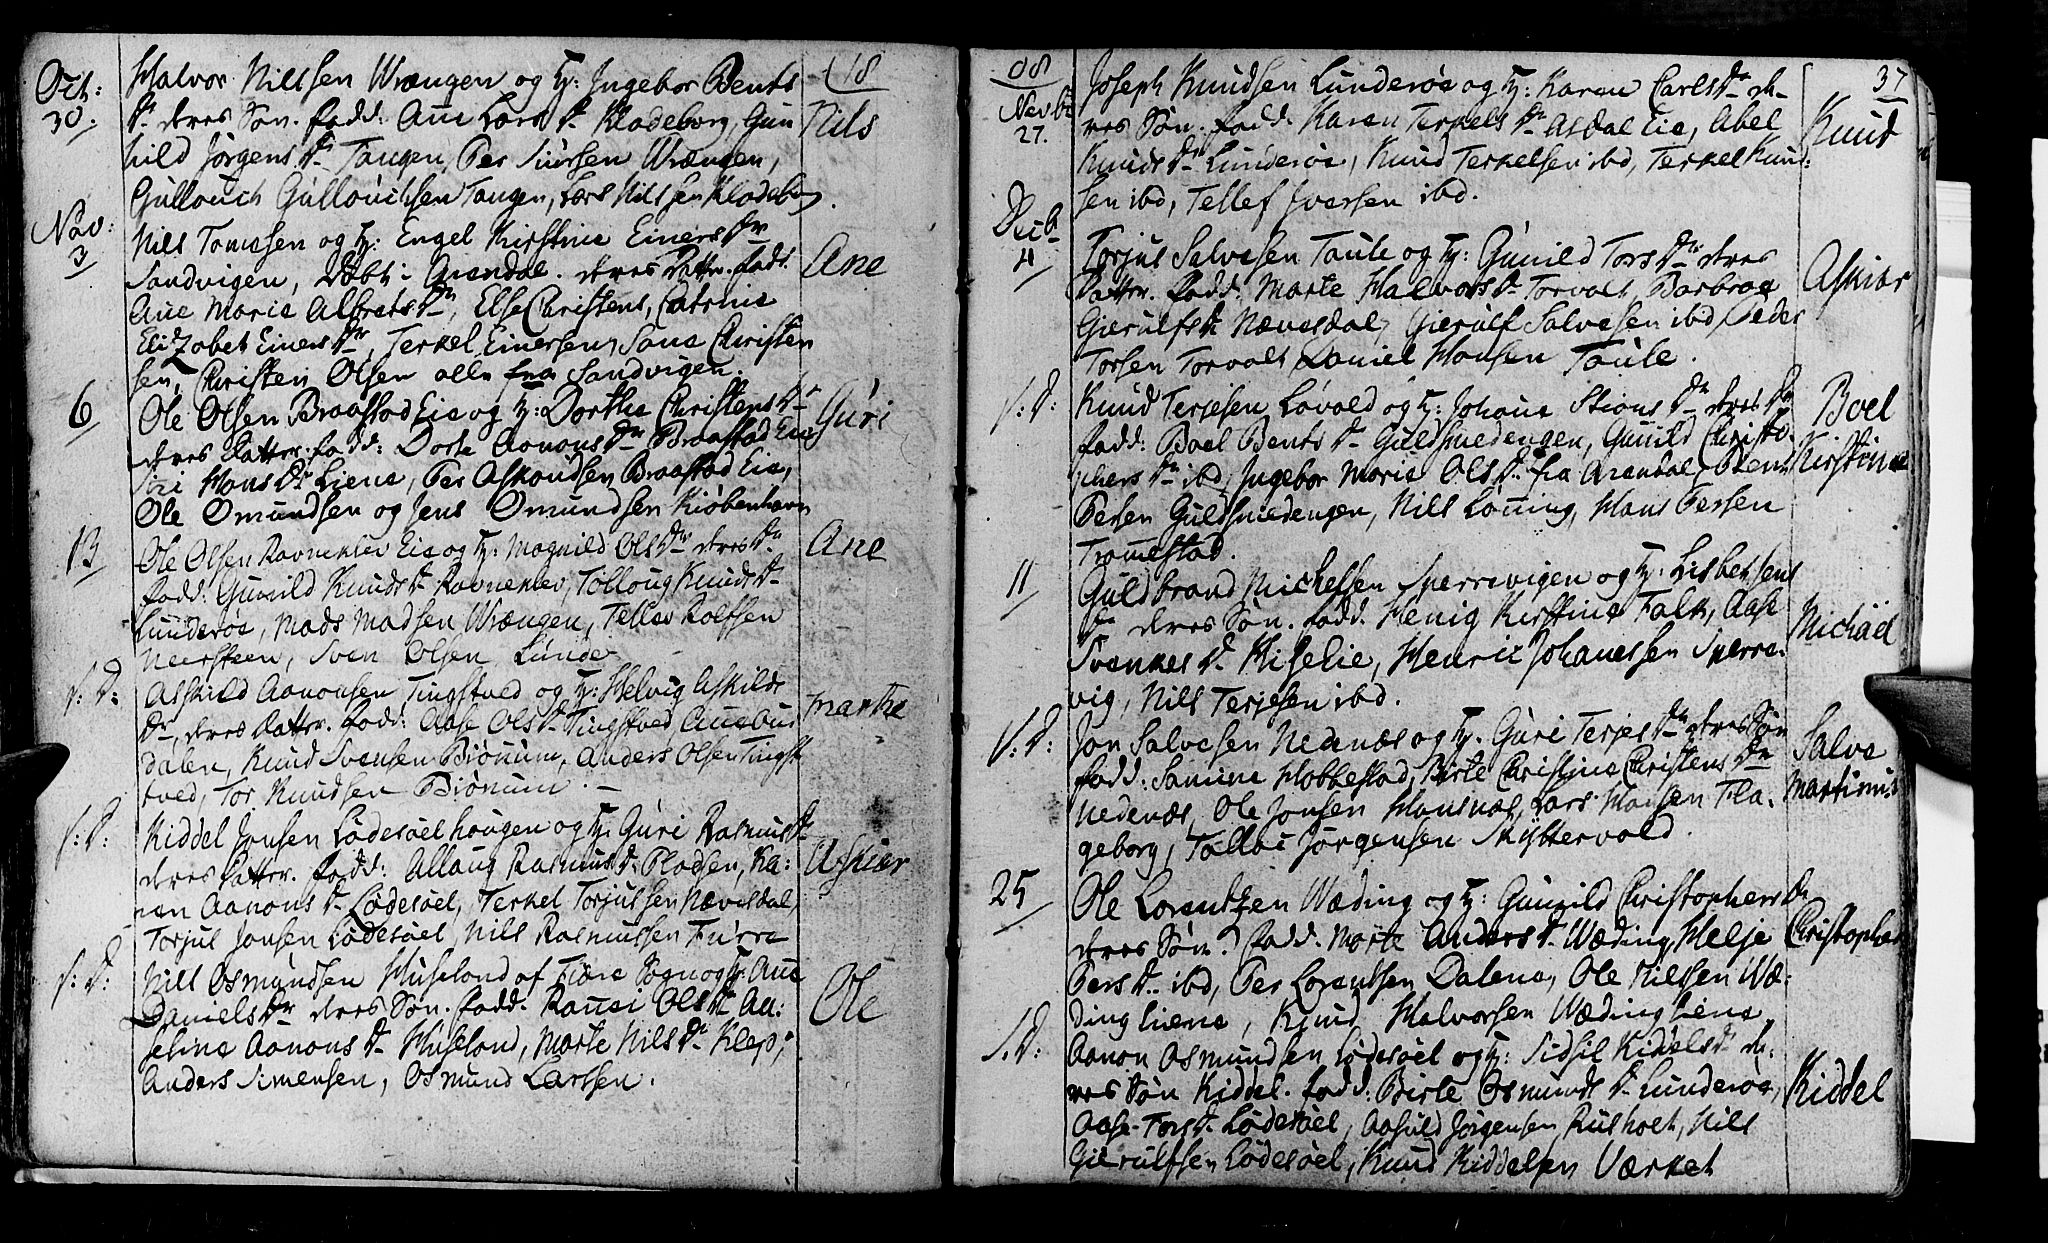 18
Oct:
30.
Halvor Nilssen Wrængen og H: Ingebor Bents
Dr deres Søn. fadd: Ane Lars Dr Kladeborg, Gun
Nils
hild Jørgens Dr Tangen, Per Siursen Wrængen,
Gullouch Gullouchsen Tangen, Lars Nilssen Kladeborg.
Nov:
3
Nils Tomesen og H: Engel Kirstine Einers Dr
Sandvigen, døbt i Arendal. deres Datter. fadd.
Ane
Ane Marie Albrets Dr, Else Christens, Catrine
Elizabet Einers Dr, Terkel Einersen, Sane Christen
sen, Christen Olsen alle fra Sandvigen.
6
Ole Olsen Braastad Eie og H: Dorthe Christens Dr
Guri
deres Datter. fadd: Dorte Aanons Dr Braastad Eie
Siri Hans Dr Liene, Per Askoudsen Braastad Eie,
Ole Omundsen og Jens Omundsen Kiøbenhavn
13
Ole Olsen Ravneklev Eie og H: Magnild Ols Dr deres Dr
Ane
fadd: Gunild Knuds Dr Ravneklev, Tolloug Knuds Dr
Lunderøe, Mads Madsen Wrængen, Tellev Rolfsen
Neersteen, Sven Olsen Lunde
s: D:
Askild Aanonsen Tingstved og H: Helvig Askilds
Dr, deres Datter. fadd: Aase Ols Dr Tingstved, Ane Bus
Marthe
dalen, Knud Svensen Biønum, Anders Olsen Tingst
tved, Tor Knudsen Biønum.
s: D:
Kiddel Jonsen Lødesøelhougen og H: Guri Rasmus Dr
deres Datter. fadd: Allaug Rasmus Dr Pladsen, Ka:
Askier
ren Aanons Dr Lødesøel, Terkel Torjussen Nævesdal,
Torjus Jonsen Lødesøel, Nils Rasmussen Furre
s: D:
Nils Osmundsen Huseland af Fiære Sogn og H: Ane
Daniels Dr deres Søn. fadd. Rannei Ols Dr Aa:
Ole
seline Aanons Dr Huseland, Marte Nils Dr Klep,
Anders Simensen, Osmund Larssen.
08
37
Novbr
27.
Joseph Knudsen Lunderøe og H: Karen Carls Dr de-
res Søn. fadd. Karen Terkels Dr Asdal Eie, Abel
Knud
Knuds Dr Lunderøe, Knud Terkelsen ibd, Terkel Knud:
sen ibd, Tellef Iversen ibd.
Decb
4
Torjus Salvesen Taule og H: Gunild Tors Dr deres
Askier
Datter. fadd. Marte Halvors Dr Torvolt, Barbroe
Gierulfs Dr Nævesdal, Gierulf Salvesen ibd, Peder
Torsen Torvolt, Daniel Hansen Taule.
s: D:
Knud Terjesen Løvold og H: Johane Stians Dr deres Dr
Boel
fadd: Boel Bents Dr Guldsmedengen, Gunild Christo
Kirstine
phers Dr ibd, Ingebor Marie Ols Dr fra Arendal, Bent
Persen Guldsmedengen, Nils Lønning, Hans Persen
Trommestad.
11
Guldbrand Michelsen Sperrevigen og H: Lisbet Jens
Dr deres Søn. fadd. Henig Kirstine Falk, Aase
Michael
Svenkes Dr Kiselie, Henric Johanessen Sperre-
vig, Nils Terjesen ibd.
s: D:
Jon Salvesen Nedenæs og H. Guri Terjes Dr deres Søn
Salve
fadd: Samine Hobbestad, Birte Christine Christens Dr
Martinus
Nedenæs, Ole Jonsen Hansnæs, Lars Hansen Fla-
geborg, Tallac Jørgensen Skyttervold.
25
Ole Lorentzen Wæding og H: Gunnild Christophers Dr
deres Søn. fadd. Marte Anders Dr Wæding, Helje
Christopher
Pers Dr ibd, Per Lorentsen Dalene, Ole Nilssen Wæ-
ding Liene, Knud Halvorsen Wæding Liene
s. D:
Aanon Osmundsen Lødesøel og H: Sidsil Kiddels Dr de-
res Søn Kiddel. fadd: Birte Osmunds Dr Lunderøe,
Kiddel
Aase Tors Dr Lødesøel, Aasuld Jørgensen, Rusholt, Nils
Gierulfsen Lødesøel, Knud Kiddelsen Værket